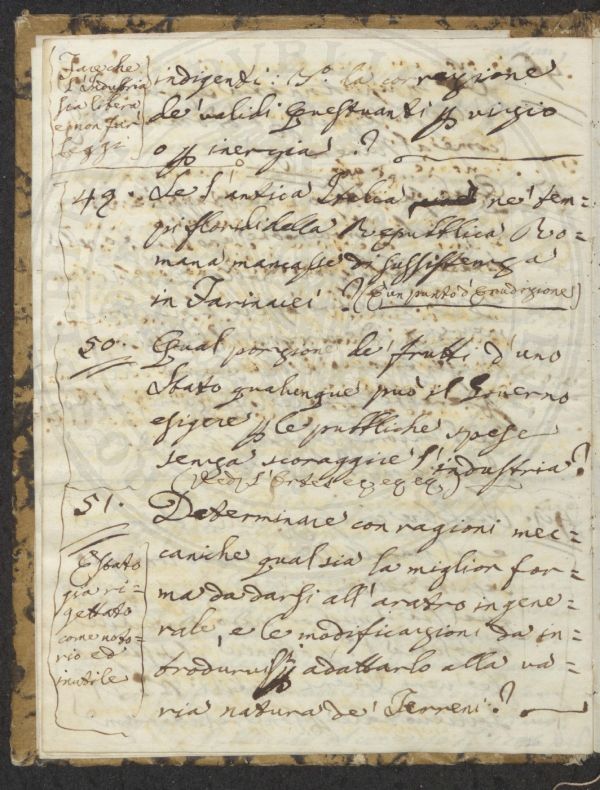 che
l'Industria
sia libera
e non far
leggi
indigenti: 3.º la correzione
de' validi Questuanti p vizio
o p inerzia?
49. Se l'antica Italia ne' tem=
pi floridi della Repubblica Ro=
mana mancasse di sussistenza
in Farinacei? (È un punto d'Erudizione)
50. Qual porzione de' frutti d'uno
Stato qualunque può il Governo
esigere p le pubbliche spese
senza scoraggire l'industria?
(Vedi l'Ortes
51. Determinare con ragioni mec=
caniche qual sia la miglior for=
ma da darsi all'aratro in gene=
rale, e le modificazioni da in=
trodurvisi p adattarlo alla va=
ria natura de' Terreni?
È stato
già ri=
gettato
come noto=
rio ed
inutile